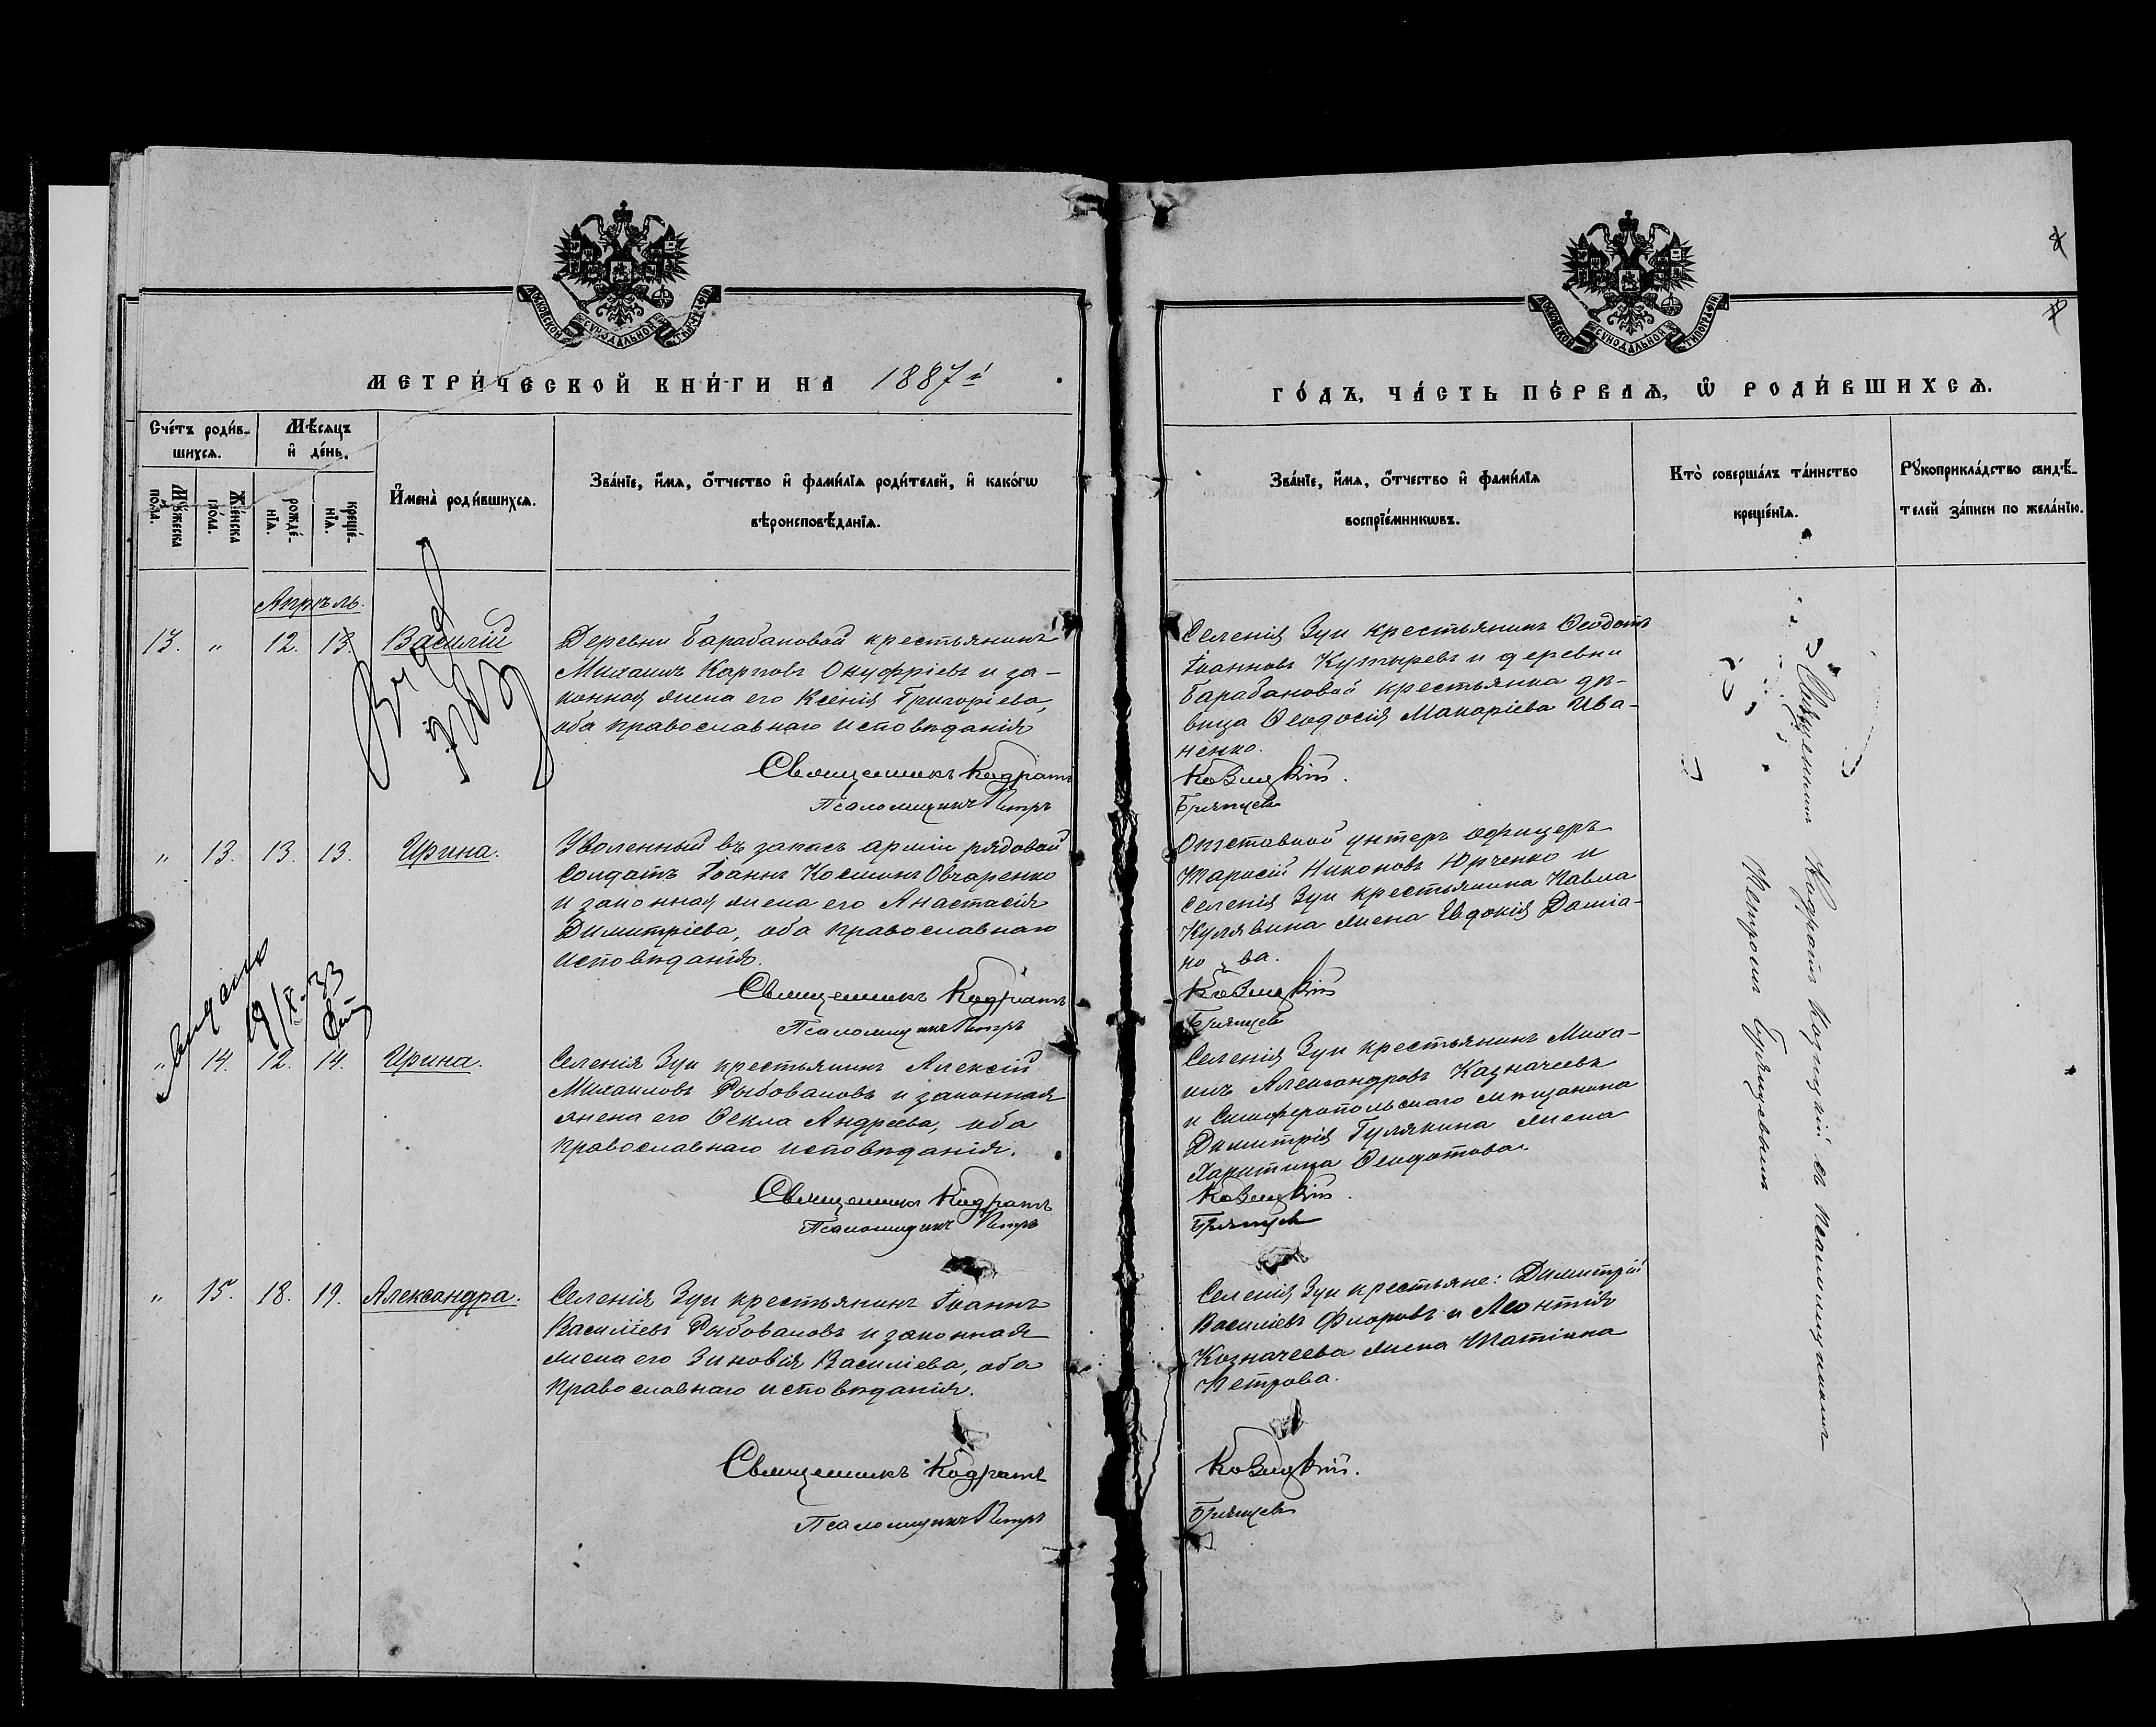 МОСКОВСКОЙ СУНОДАЛЬНОЙ ТИПОГРАФІИ
МЕТРИ́ЧЕСКОЙ КНИ́ГИ НА 1887й
Сче́тъ роди́в-
шихсѧ.
Мѣ́сѧцъ
и҆ де́нь.
Мꙋ́жеска
по́ла.
Же́нска
по́ла.
рожде́-
нїѧ.
креще́-
нїѧ.
И҆мена̀ роди́вшихсѧ.
Зва́нїе, и҆́мѧ, ѻ҆́тчество и҆ фами́лїѧ роди́телей, и҆ како́гѡ
вѣроисповѣ́данїѧ.
Апрѣль.
13. " 12. 13. Василій
Деревни Барабановой крестьянинъ
Михаилъ Карповъ Онуфріевъ и за-
конная жена его Ксенія Григоріева,
оба православнаго исповѣданія
Священникъ Кодратъ
Псаломщикъ Петръ
" 13. 13. 13. Ирина.
Уволенный въ запасъ арміи рядовой
солдатъ Іоаннъ Косминъ Овчаренко
и законная жена его Анастасія
Димитріева, оба православнаго
исповѣданія.
Священникъ Кодратъ
Псаломщикъ Петръ
19/X-33
" 14. 12. 14. Ирина.
Селенія Зуи крестьянинъ Алексій
Михаиловъ Рыбоваловъ и законная
жена его Ѳекла Андреева, оба
православнаго исповѣданія.
Священникъ Кодратъ
Псаломщикъ Петръ
" 15. 18. 19. Александра.
Селенія Зуи крестьянинъ Іоаннъ
Василіевъ Рыбоваловъ и законная
жена его Зиновія Василіева, оба
православнаго исповѣданія.
Священникъ Кодратъ
Псаломщикъ Петръ
МОСКОВСКОЙ СУНОДАЛЬНОЙ ТИПОГРАФІИ
ГО́ДЪ, ЧА́СТЬ ПЕ́РВАѦ, Ѡ҆ РОДИ́ВШИХСѦ.
Зва́нїе, и҆́мѧ, ѻ҆́тчество и҆ фами́лїѧ
воспрїе́мникѡвъ.
Кто̀ соверша́лъ та́инство
креще́нїѧ.
Рꙋкоприкла́дство свидѣ́-
телей за́писи по жела́нїю.
Селенія Зуи крестьянинъ Ѳеодотъ
Іоанновъ Кутыревъ и деревни
Барабановой крестьянка дѣ-
вица Ѳеодосія Макаріева Ива-
ненко.
Козицкій.
Брянцевъ
Отставной унтеръ офицеръ
Тарасій Никоновъ Юрченко и
селенія Зуи крестьянина Павла
Кулявина жена Евдокія Даміа-
нова.
Козицкій
Брянцевъ
Селенія Зуи крестьянинъ Миха-
илъ Александровъ Казначеевъ
и Симферопольскаго мѣщанина
Димитрія Гулякина жена
Харитина Ѳеодотова.
Козицкій.
Брянцевъ
Селенія Зуи крестьяне: Димитрій
Василіевъ Флоровъ и Леонтія
Козначеева жена Татіана
Петрова.
Козицкій.
Брянцевъ
Священникъ Кодратъ Козицкій съ псаломщикомъ
Петромъ Брянцевымъ